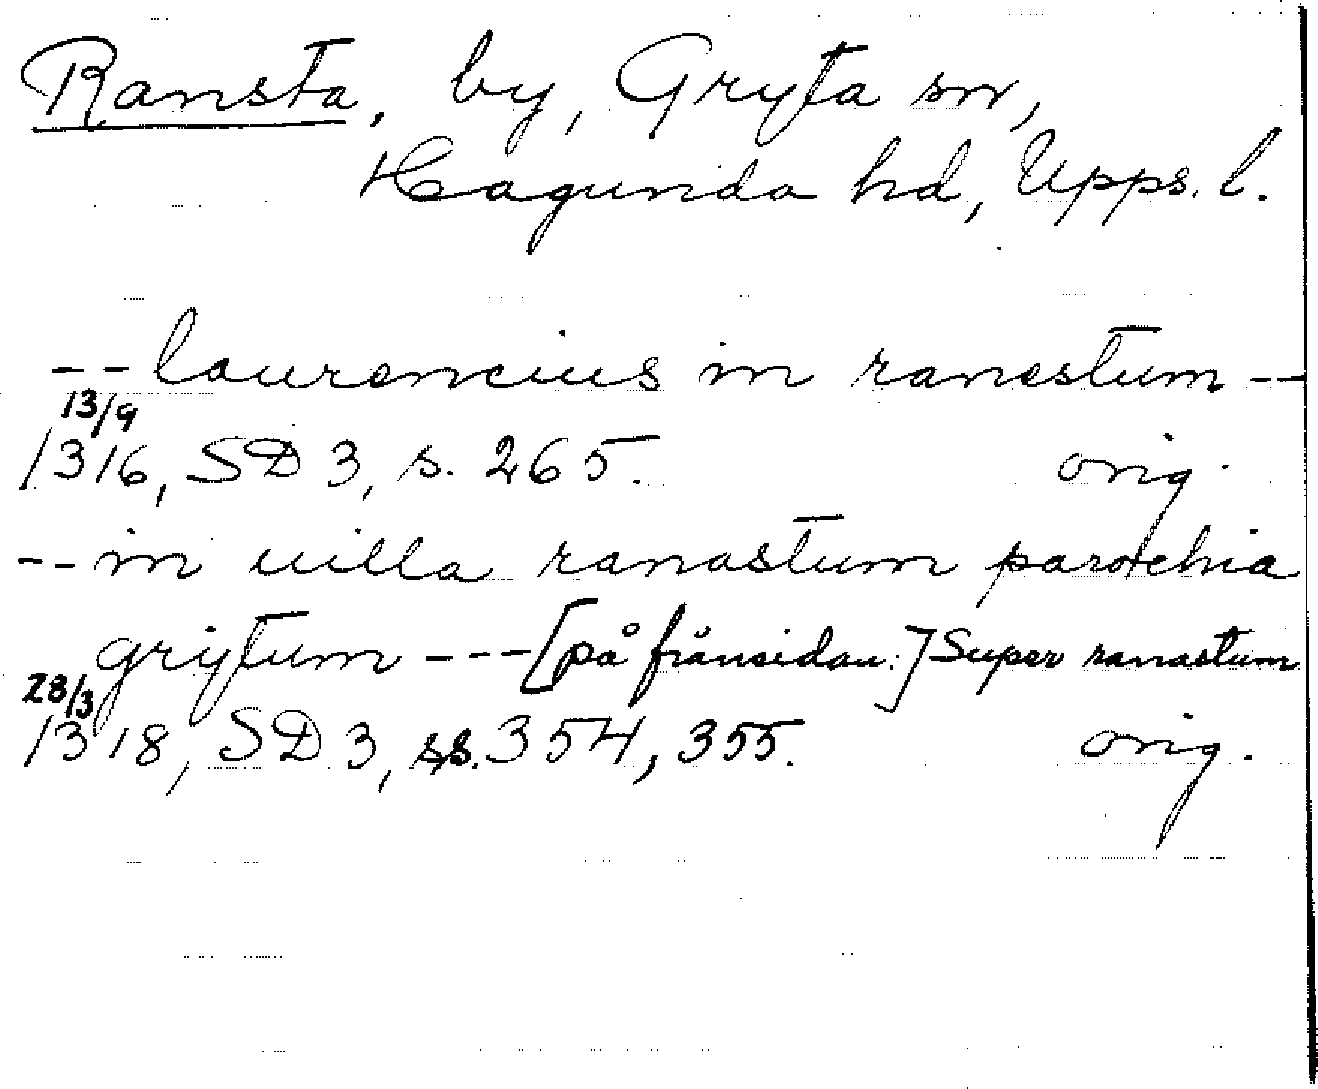 Ransta, by, Gryta sn,
Hagunda hd, Upps. l.
-- laurencius in ranestum --
13/9
1316, SD 3, s. 265. orig.
-- in uilla ranastum parochia
grytum --- [på frånsidan:] Super ranastum
28/3
1318, SD 3, ss. 354, 355. orig.